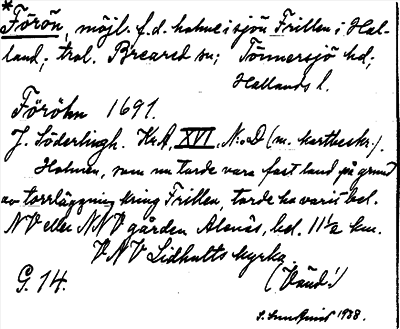 *Förön, möjl. f.d. holme i sjön Frillen i Hal-
land; trol. Breared sn; Tönnersjö hd;
Hallands l.
Föröhn 1691.
J. Söderlingh. KrA, XVI, N:o D (m. kartbeskr.).
Holmen, som nu torde vara fast land på grund
av torrläggning kring Frillen, torde ha varit bel.
NV eller NNV gården Alenäs, bel. 11½ km.
VNV Lidhults kyrka.
G. 14. (Vänd!)
1938.